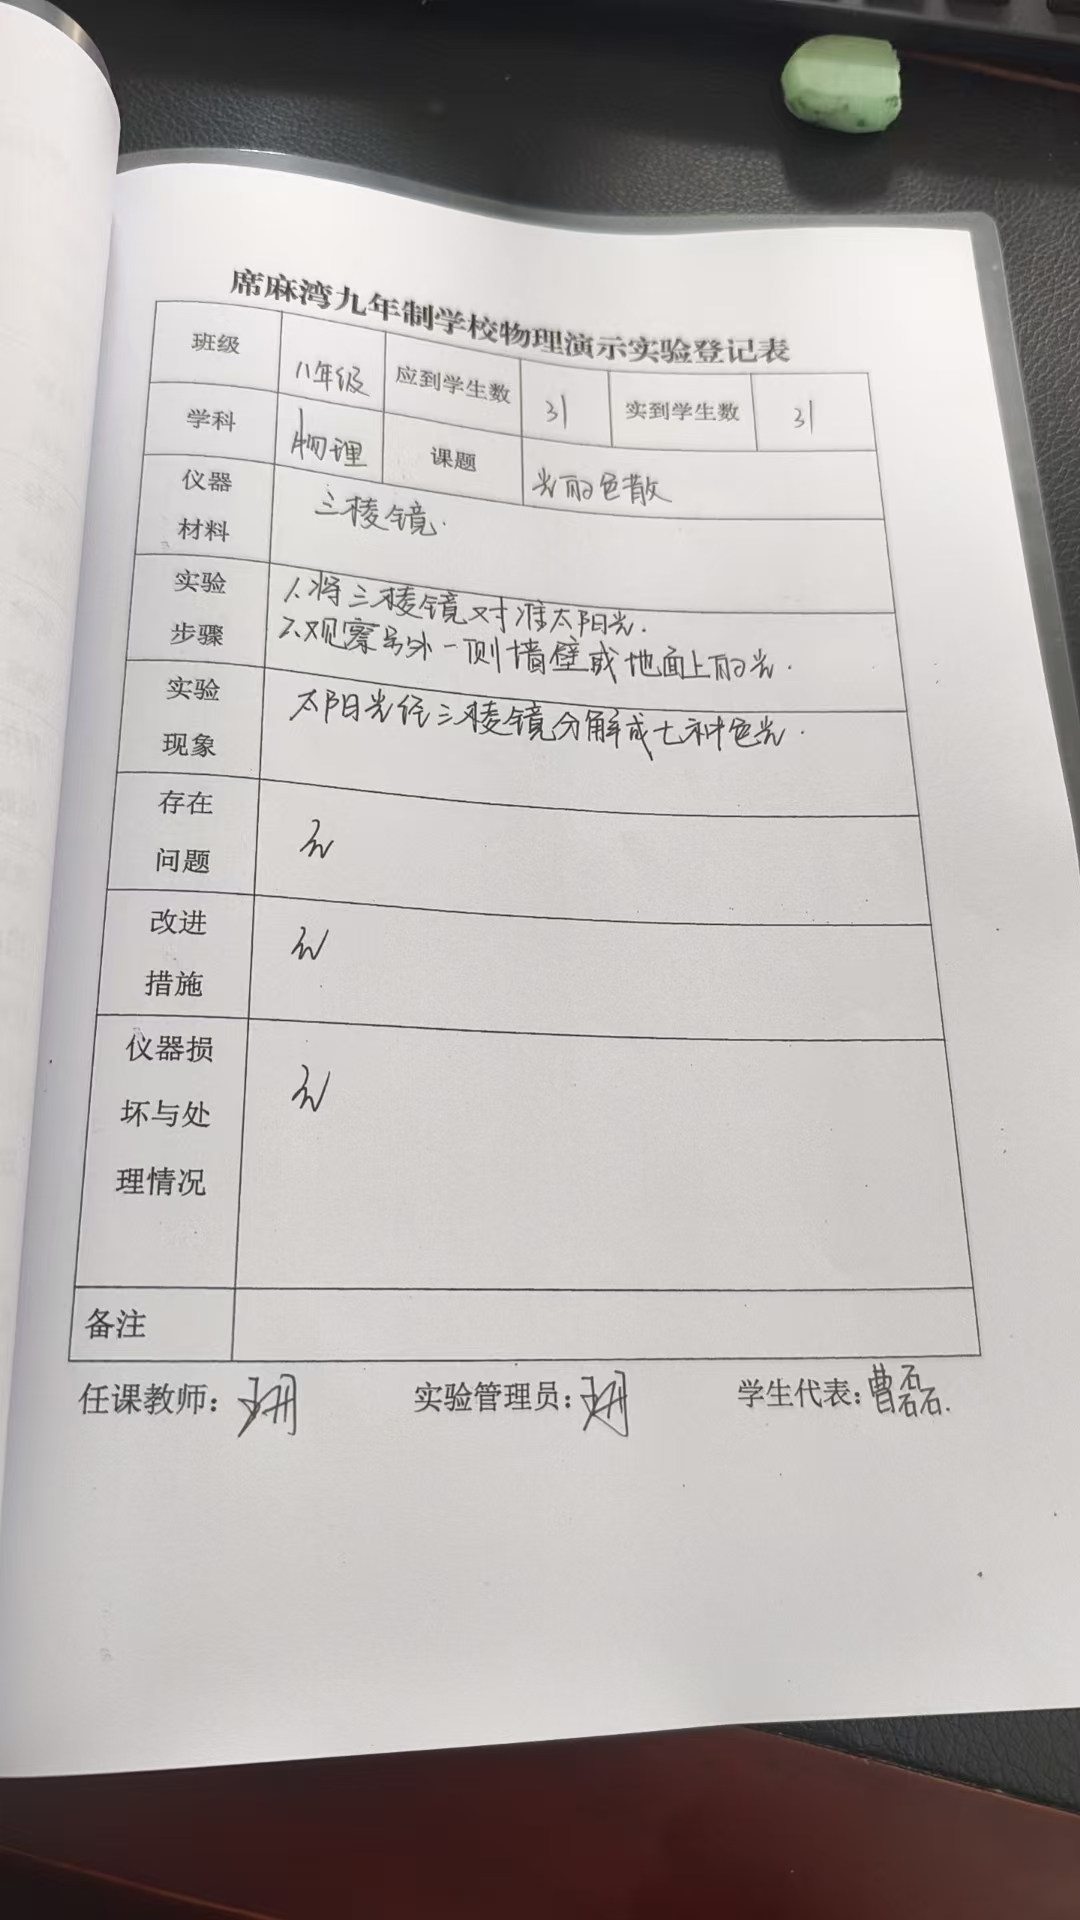 席麻湾九年制学校物理演示实验登记表
班级 八年级 应到学生数 31 实到学生数 31
学科 物理 课题 光的色散
仪器
材料
三棱镜.
实验
步骤
1.将三棱镜对准太阳光.
2.观察另外一侧墙壁或地面上的光.
实验
现象
太阳光经三棱镜分解成七种色光.
存在
问题
无
改进
措施
无
仪器损
坏与处
理情况
无
备注
任课教师: 实验管理员: 学生代表:曹磊.